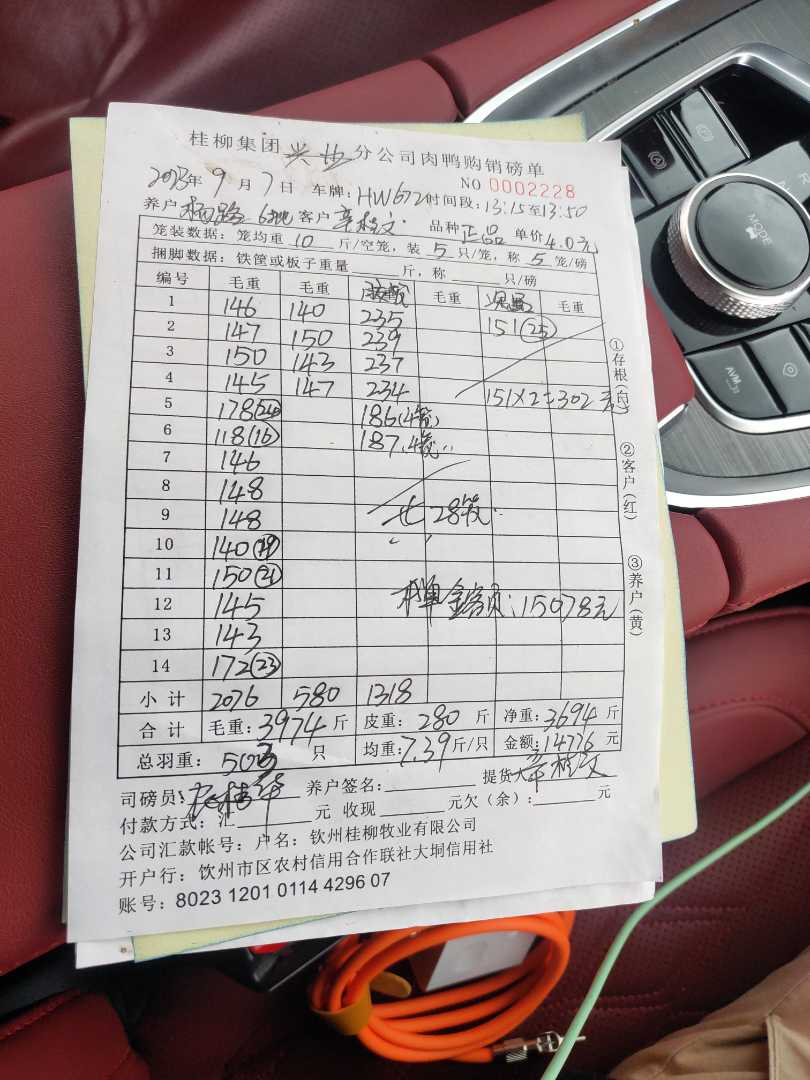 桂柳集团 分公司肉鸭购销磅单
NO 0002228
2023年 9 月 7 日 车牌: HW672 时间段: 13:15至13:50
养户 杨路 客户 品种 正品 单价 4.0元
笼装数据: 笼均重 10 斤/空笼, 装 5 只/笼, 称 5 笼/磅
捆脚数据: 铁筐或板子重量 斤, 称 只/磅
编号 毛重 毛重 毛重 毛重
1 146 140 235 151(25)
2 147 150 239
3 150 143 237
4 145 147 234 151×2=302元
5 178(24) 186(4笼)
6 118(16) 187.4笼
7 146
8 148
9 148 28笼
10 140(19)
11 150(21)
12 145 金额: 15078元
13 143
14 172(23)
小计 2076 580 1318
合计 毛重: 3974 斤 皮重: 280 斤 净重: 3694 斤
总羽重: 503 只 均重: 7.39 斤/只 金额: 14776 元
司磅员: 养户签名: 提货
付款方式: 汇 元 收现 元欠(余): 元
公司汇款帐号: 户名: 钦州桂柳牧业有限公司
开户行: 饮州市区农村信用合作联社大垌信用社
账号: 8023 1201 0114 4296 07
①存根(白)
②客户(红)
③养户(黄)
MODE
R
A
AVM